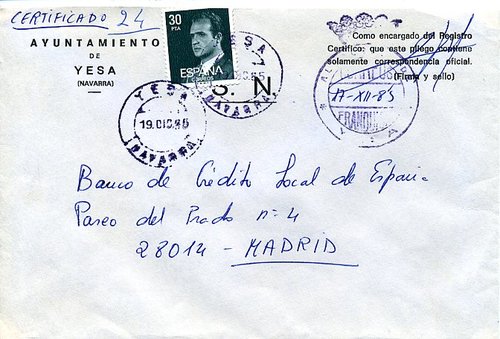 CERTIFICADO 24
AYUNTAMIENTO
DE
YESA
(NAVARRA)
30
PTA
ESPAÑA
YESA
(NAVARRA)
S. N
YESA
19.DIC.85
(NAVARRA)
Como encargado del Registro
Certifico: que este pliego contiene
solamente correspondencia oficial.
(Firma y sello)
17-XII-85
FRANQUICIA
Banco de Crédito Local de España
Paseo del Prado nº 4
28014 - MADRID